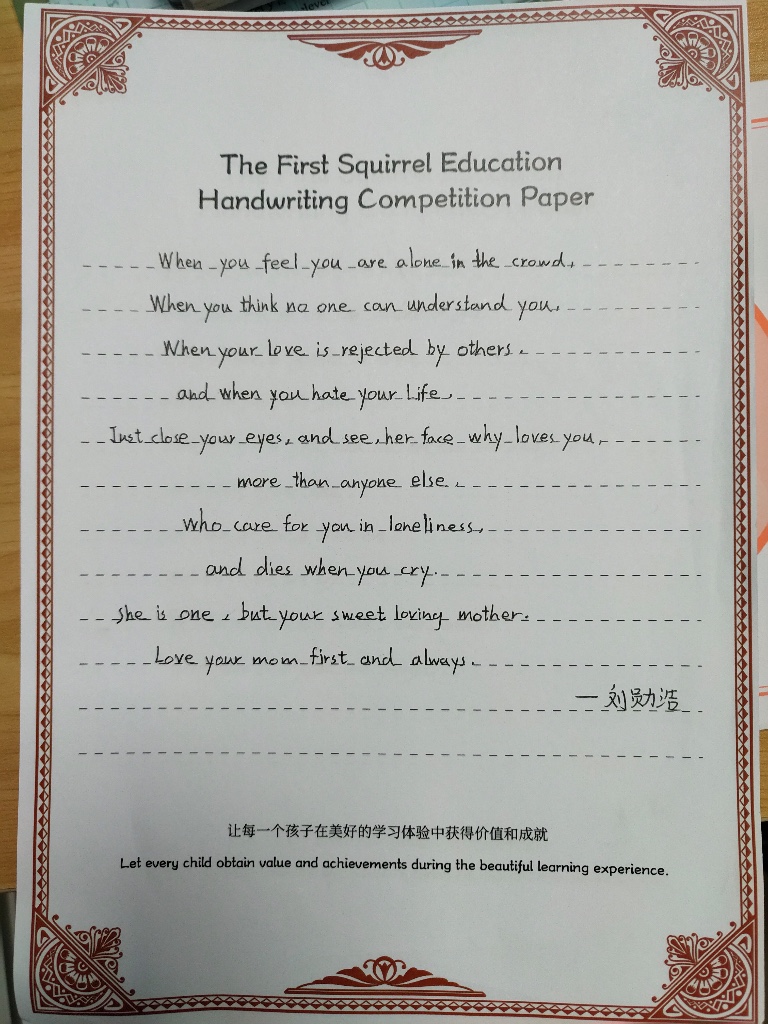 The First Squirrel Education
Handwriting Competition Paper
When you feel you are alone in the crowd,
When you think no one can understand you,
When your love is rejected by others.
and when you hate your Life,
Just close your eyes, and see, her face why loves you,
more than anyone else.
who care for you in loneliness,
and dies when you cry.
she is one, but your sweet loving mother.
Love your mom first and always.
— 刘勋浩
让每一个孩子在美好的学习体验中获得价值和成就
Let every child obtain value and achievements during the beautiful learning experience.